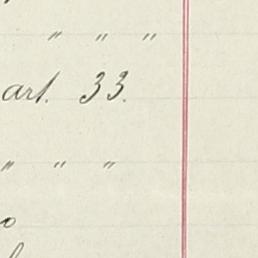 " " "
art. 33.
" " "
o